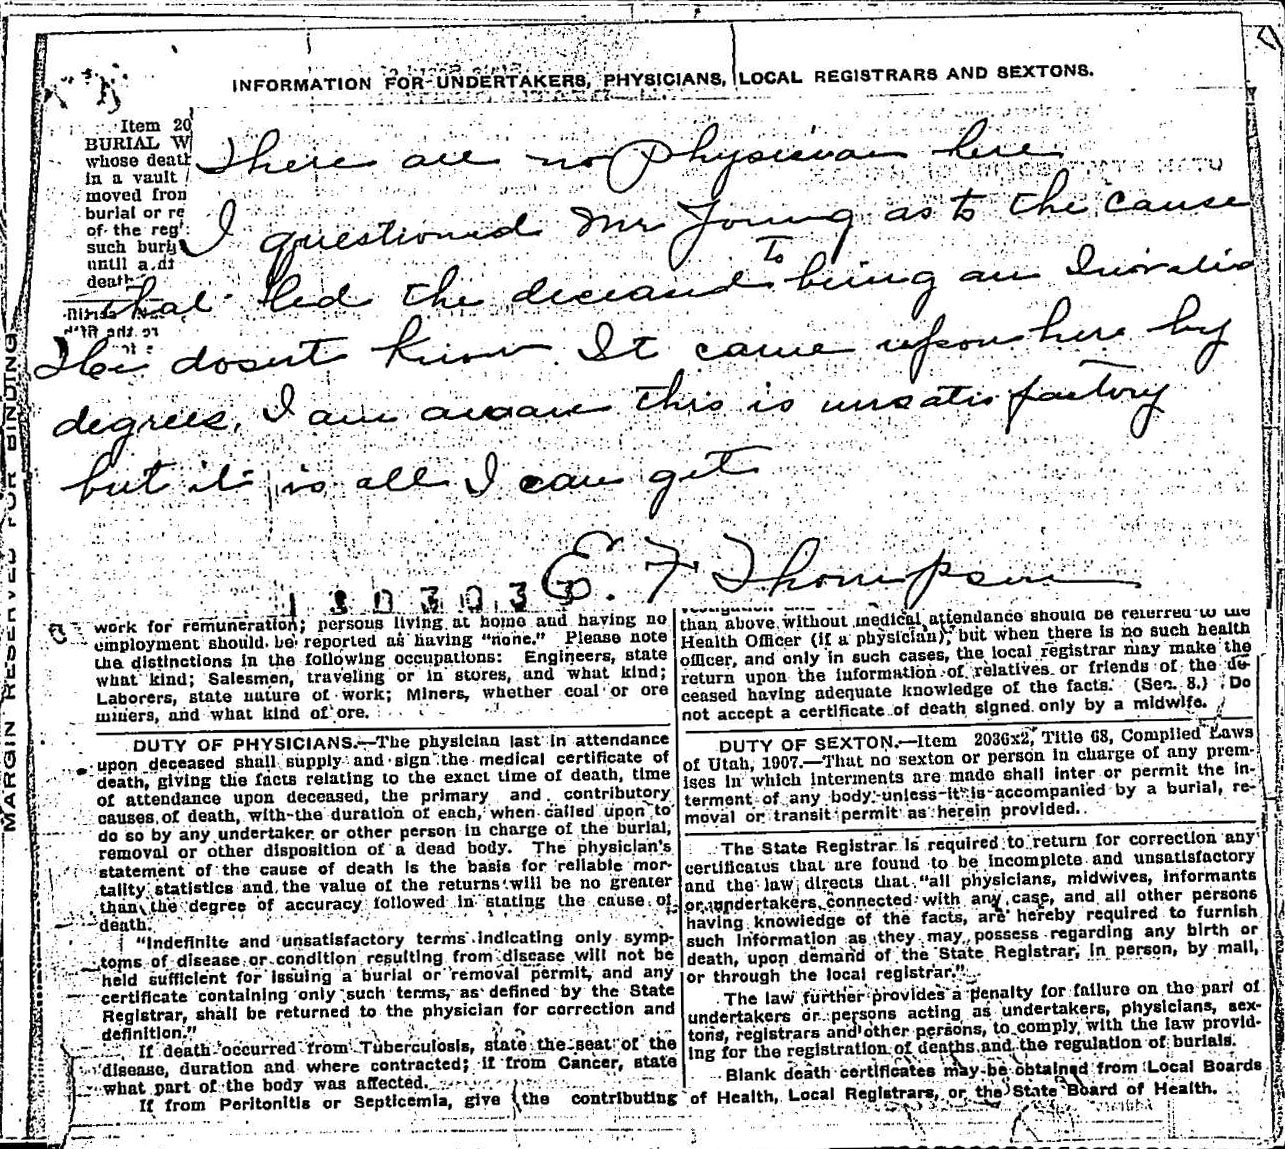 INFORMATION FOR UNDERTAKERS, PHYSICIANS, LOCAL REGISTRARS AND SEXTONS.
Item 20
BURIAL W
whose deat
in a vault
moved from
burial or re
of the reg
such buri
until a
death
There are no Physician here
I questioned Mr Young as to the cause
that led the deceased To being an Invalid
He dosent know It came upon here by
degrees, I am aware this is unsatisfactory
but it is all I can get
E. F Thompson
MARGIN RESERVED FOR BINDING
work for remuneration; persons living at home and having no
employment should be reported as having "none." Please note
the distinctions in the following occupations: Engineers, state
what kind; Salesmen, traveling or in stores, and what kind;
Laborers, state nature of work; Miners, whether coal or ore
miners, and what kind of ore.
DUTY OF PHYSICIANS.—The physician last in attendance
upon deceased shall supply and sign the medical certificate of
death, giving the facts relating to the exact time of death, time
of attendance upon deceased, the primary and contributory
causes of death, with the duration of each, when called upon to
do so by any undertaker or other person in charge of the burial,
removal or other disposition of a dead body. The physician's
statement of the cause of death is the basis for reliable mor-
tality statistics and the value of the returns will be no greater
than the degree of accuracy followed in stating the cause of
death.
"Indefinite and unsatisfactory terms indicating only symp-
toms of disease or condition resulting from disease will not be
held sufficient for issuing a burial or removal permit, and any
certificate containing only such terms, as defined by the State
Registrar, shall be returned to the physician for correction and
definition."
If death occurred from Tuberculosis, state the seat of the
disease, duration and where contracted; if from Cancer, state
what part of the body was affected.
If from Peritonitis or Septicemia, give the contributing
than above without medical attendance should be referred to the
Health Officer (if a physician), but when there is no such health
officer, and only in such cases, the local registrar may make the
return upon the information of relatives or friends of the de-
ceased having adequate knowledge of the facts. (Sec. 8.) Do
not accept a certificate of death signed only by a midwife.
DUTY OF SEXTON.—Item 2036x2, Title 68, Compiled Laws
of Utah, 1907.—That no sexton or person in charge of any prem-
ises in which interments are made shall inter or permit the in-
terment of any body unless it is accompanied by a burial, re-
moval or transit permit as herein provided.
The State Registrar is required to return for correction any
certificates that are found to be incomplete and unsatisfactory
and the law directs that "all physicians, midwives, informants
or undertakers connected with any case, and all other persons
having knowledge of the facts, are hereby required to furnish
such information as they may possess regarding any birth or
death, upon demand of the State Registrar, in person, by mail,
or through the local registrar."
The law further provides a penalty for failure on the part of
undertakers or persons acting as undertakers, physicians, sex-
tons, registrars and other persons, to comply with the law provid-
ing for the registration of deaths and the regulation of burials.
Blank death certificates may be obtained from Local Boards
of Health, Local Registrars, or the State Board of Health.